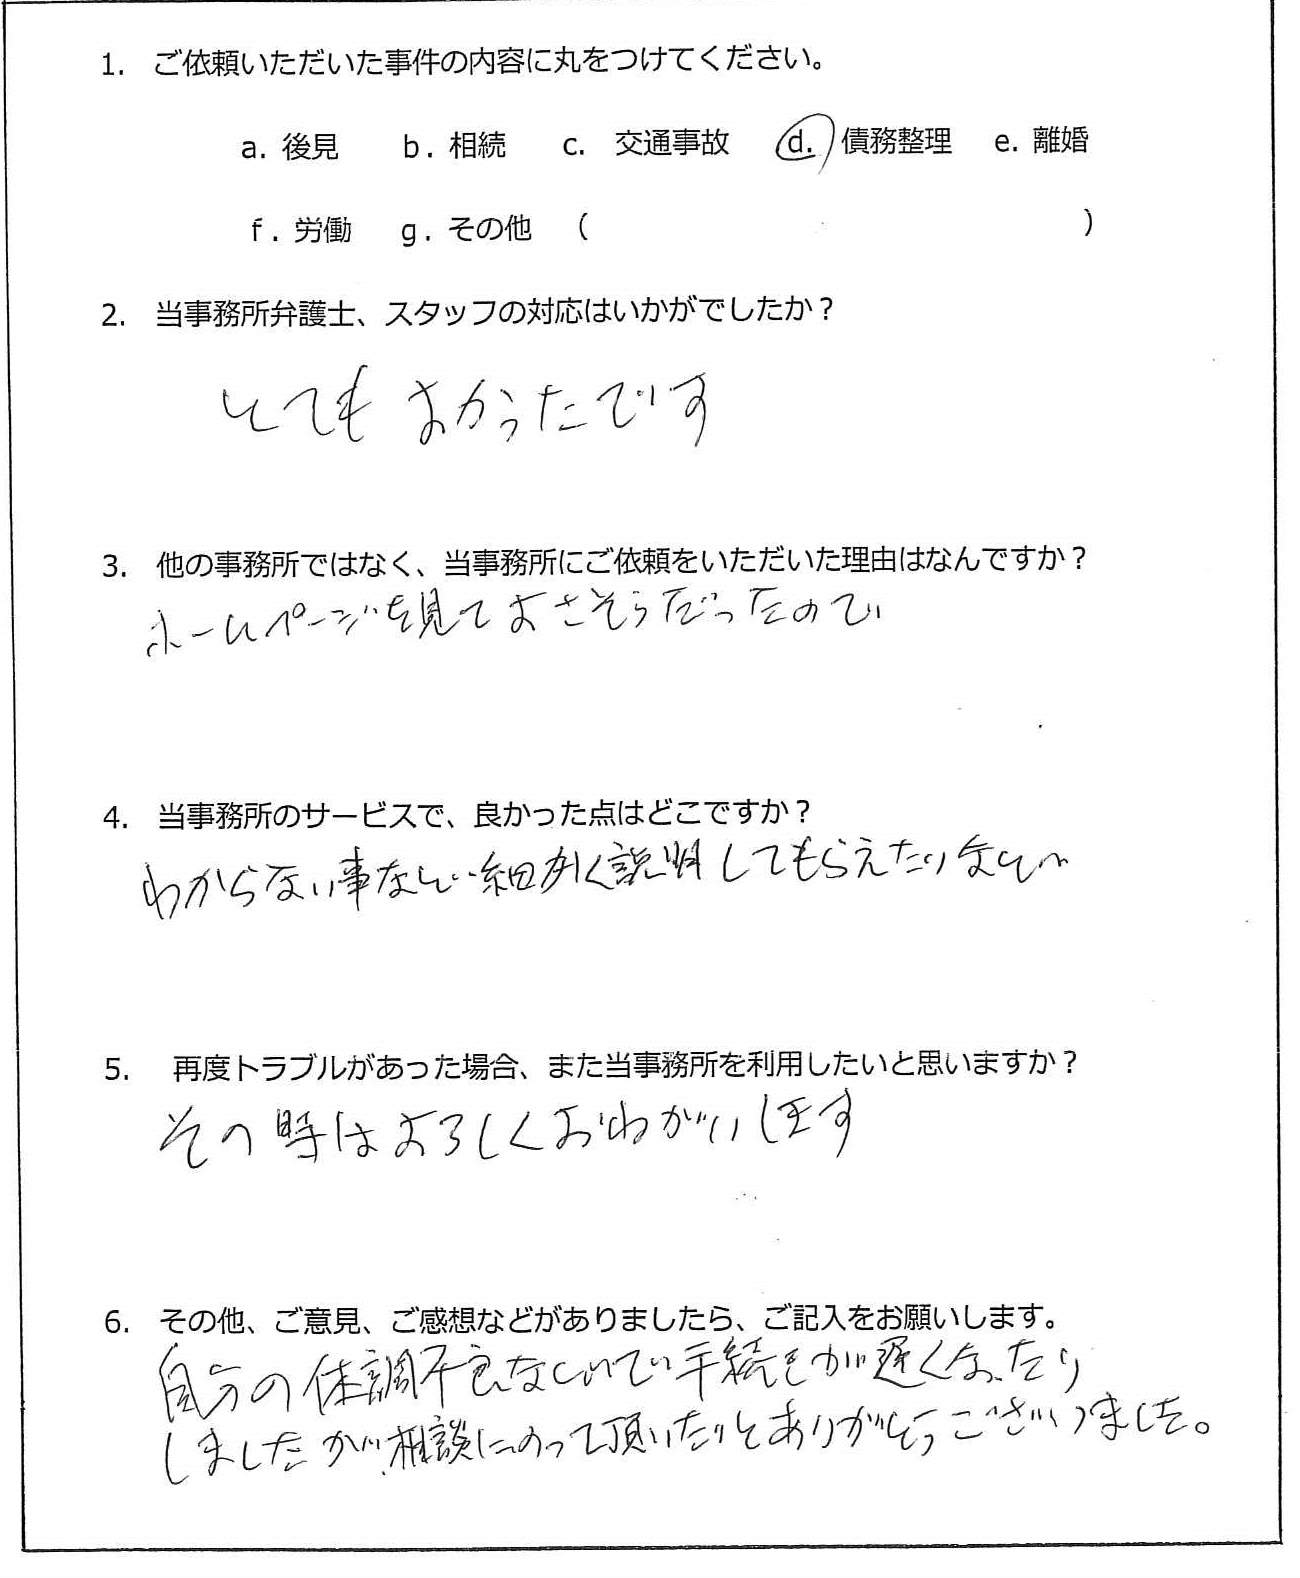 1. ご依頼いただいた事件の内容に丸をつけてください。
a. 後見 b. 相続 c. 交通事故 d. 債務整理 e. 離婚
f. 労働 g. その他 ( )
2. 当事務所弁護士、スタッフの対応はいかがでしたか？
とてもよかったです
3. 他の事務所ではなく、当事務所にご依頼をいただいた理由はなんですか？
ホームページを見てよさそうだったので
4. 当事務所のサービスで、良かった点はどこですか？
わからない事など細かく説明してもらえたりなど
5. 再度トラブルがあった場合、また当事務所を利用したいと思いますか？
その時はよろしくおねがいします
6. その他、ご意見、ご感想などがありましたら、ご記入をお願いします。
自分の体調不良などで手続きが遅くなったり
しましたが相談にのって頂いたりとありがとうございました。